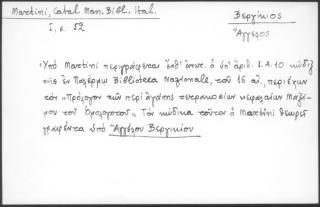 Martini, Catal. Man. Bibl. Ital.
I, σ. 52
Βεργίκιος
Ἄγγελος
Ὑπὸ Martini περιγράφεται ὁ ὑπ' ἀριθ. I. A. 10 κῶδιξ
τῆς ἐν Παλέρμῳ Biblioteca Nazionale, τοῦ 16 αἰ., περιέχων
τὸν "Πρόλογον τῶν περὶ ἀγάπης τετρακοσίων κεφαλαίων Μαξί-
μου τοῦ Ὁμολογητοῦ". Τὸν κώδικα τοῦτον ὁ Martini θεωρεῖ
γραφέντα ὑπὸ Ἀγγέλου Βεργικίου